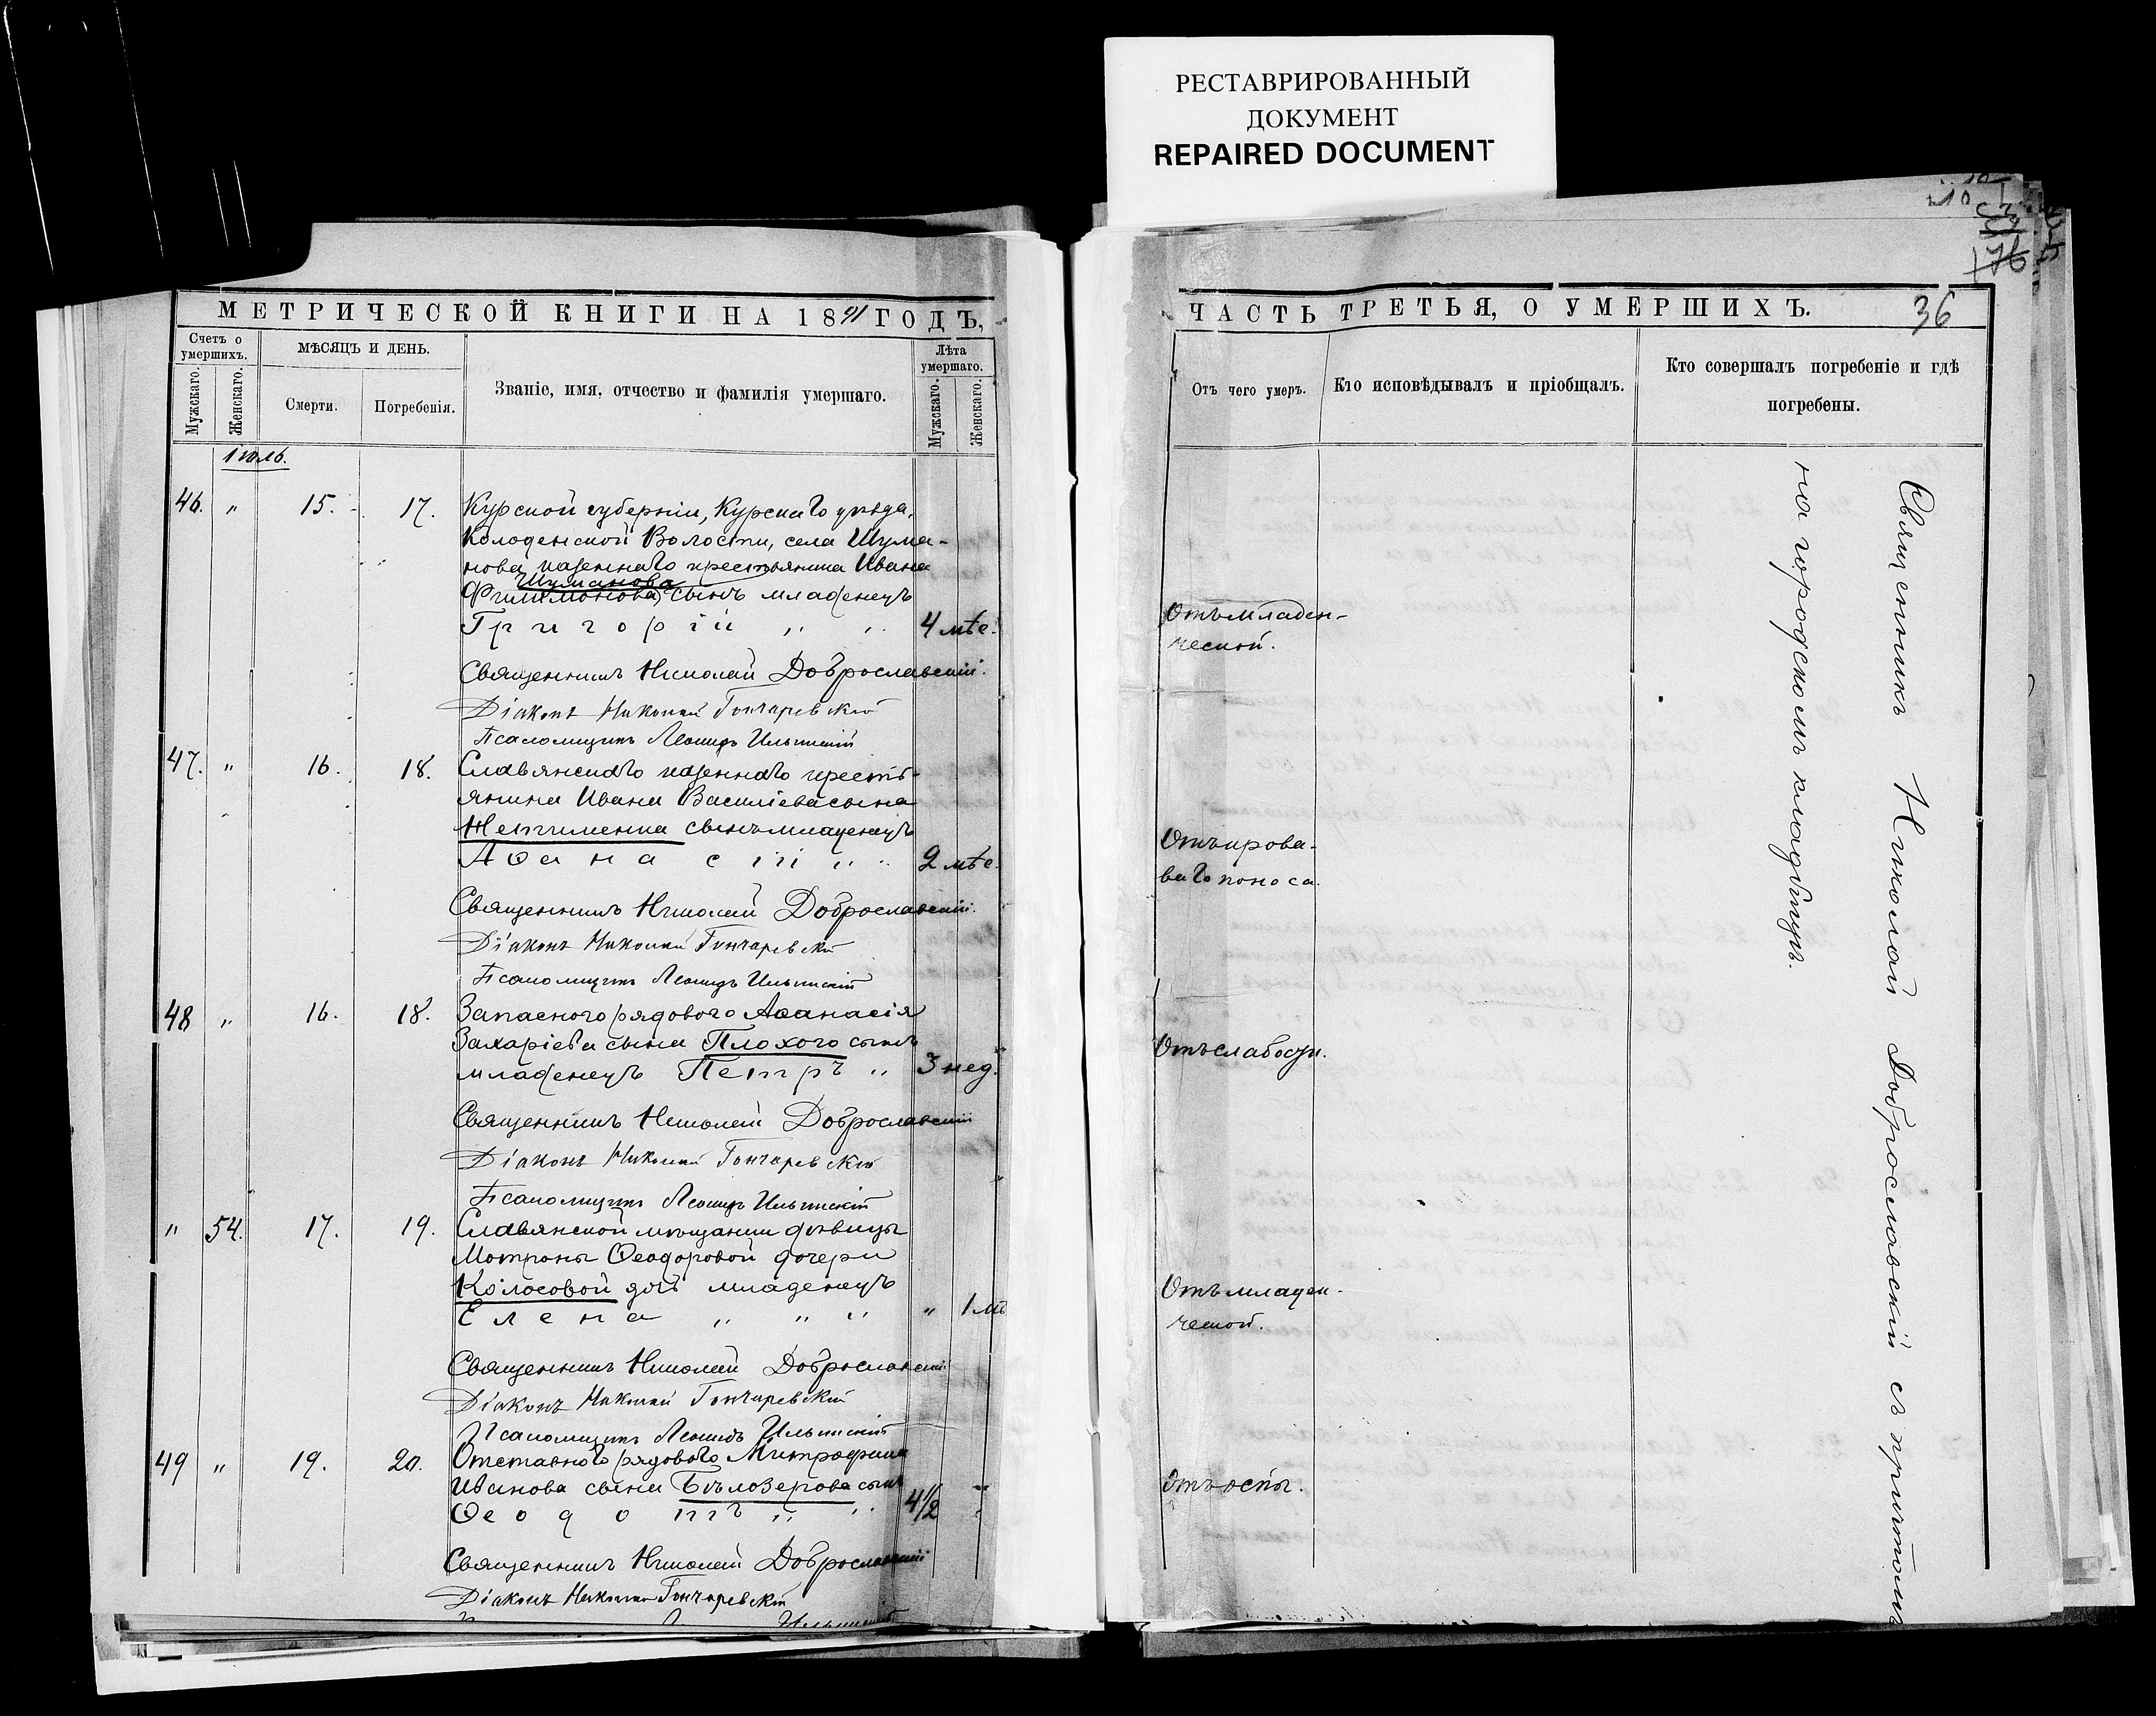 РЕСТАВРИРОВАННЫЙ
ДОКУМЕНТ
REPAIRED DOCUMENT
МЕТРИЧЕСКОЙ КНИГИ НА 1891 ГОДЪ,
Счетъ о умершихъ.
Мужскаго.
Женскаго.
МѢСЯЦЪ И ДЕНЬ.
Смерти.
Погребенія.
Званіе, имя, отчество и фамилія умершаго.
Лѣта умершаго.
Мужскаго.
Женскаго.
Іюль.
46. " 15. 17. Курской губерніи, Курскаго уѣзда,
Колоденской Волости, села Шума-
нова казеннаго крестьянина Ивана
Шуманова
Филимонова сынъ младенецъ
Григорій " " 4 мѣс.
Священникъ Николай Доброславскій.
Діаконъ Николай Гончаревскій
Псаломщикъ Леонидъ Ильинскій
47. " 16. 18. Славянскаго казеннаго кресть-
янина Ивана Василіева сына
сынъ младенецъ
Аѳанасій " " 2 мѣс.
Священникъ Николай Доброславскій.
Діаконъ Николай Гончаревскій
Псаломщикъ Леонидъ Ильинскій
48 " 16. 18. Запаснаго рядового Аѳанасія
Захаріева сына Плохого сынъ
младенецъ Петръ " 3 нед.
Священникъ Николай Доброславскій
Діаконъ Николай Гончаревскій
Псаломщикъ Леонидъ Ильинскій
" 54. 17. 19. Славянской мѣщанки дѣвицы
Мотроны Ѳеодоровой дочери
Колосовой дочь младенецъ
Елена " " " " 1 мѣ
Священникъ Николай Доброславскій
Діаконъ Николай Гончаревскій
Псаломщикъ Леонидъ Ильинскій
49 " 19. 20. Отставного рядового Митрофана
Иванова сына Бѣлозерова сынъ
Ѳеодотъ " " 4 1/2
Священникъ Николай Доброславскій
Діаконъ Николай Гончаревскій
Ильинскій
ЧАСТЬ ТРЕТЬЯ, О УМЕРШИХЪ.
36
76
Отъ чего умеръ.
Кто исповѣдывалъ и пріобщалъ.
Кто совершалъ погребеніе и гдѣ
погребены.
Отъ младен-
ческой.
Отъ крова-
ваго поноса.
Отъ слабости.
Отъ младен-
ческой.
Отъ оспы.
Священникъ Николай Доброславскій съ причтомъ
на городскомъ кладбищѣ.